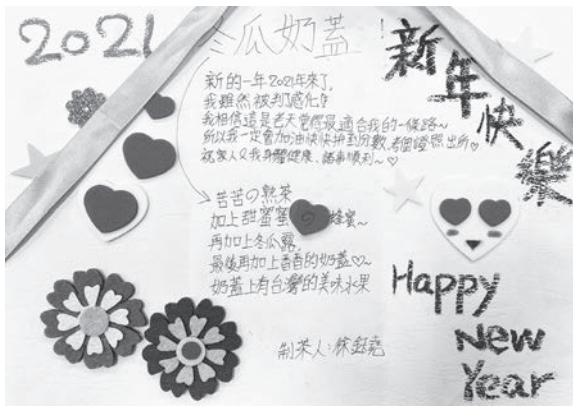 2021
冬瓜奶蓋
!
新年快樂
新的一年2021年來了,
我雖然被判了感化!
我相信這是老天爺賞最適合我的一條路~
所以我一定會加油快快拚到分數,考個證照出所♡
祝家人又我身體健康、諸事順利~♡
苦苦の熟茶
加上甜蜜蜜の蜂蜜~
再加上冬瓜露,
最後再加上香香的奶蓋♡~
奶蓋上有台灣的美味水果
制茶人:
Happy
New
Year